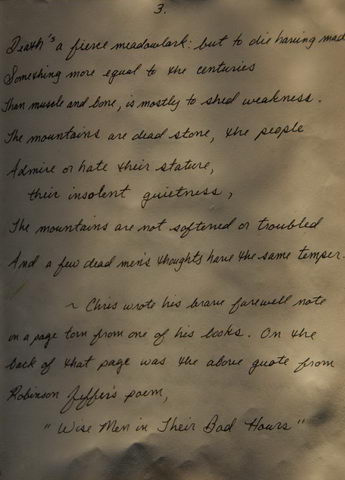 3.
Death's a fierce meadowlark: but to die having made
Something more equal to the centuries
Than muscle and bone, is mostly to shed weakness.
The mountains are dead stone, the people
Admire or hate their stature,
their insolent quietness,
The mountains are not softened or troubled
And a few dead men's thoughts have the same temper.
~ Chris wrote his brave farewell note
on a page torn from one of his books. On the
back of that page was the above quote from
Robinson Jeffer's poem,
"Wise Men in Their Bad Hours"